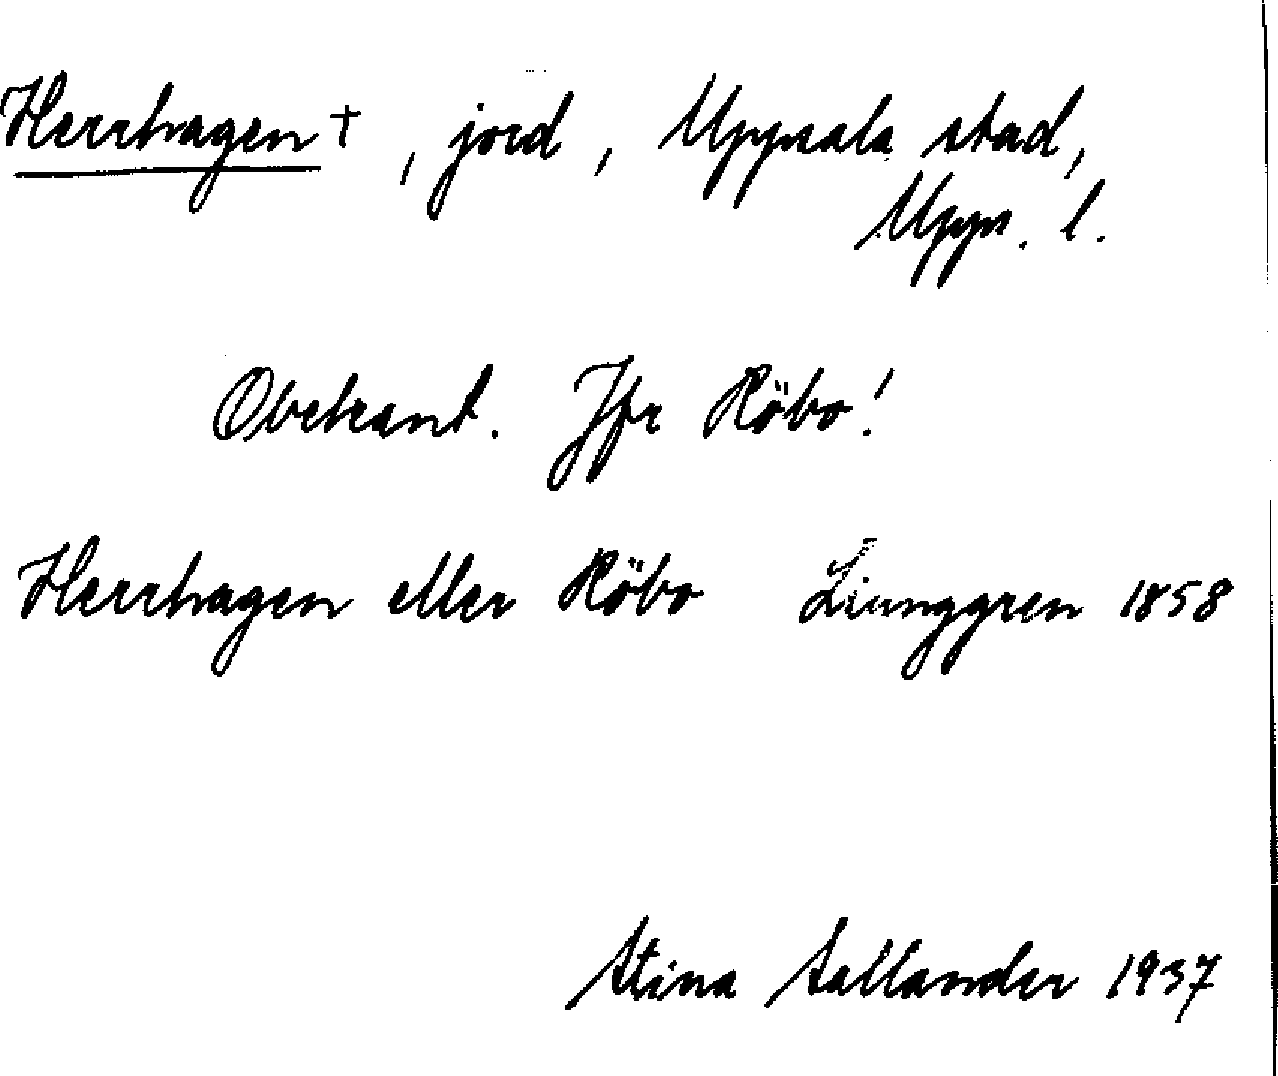 Herrhagen †, jord, Uppsala stad,
Upps. l.
Obekant. Jfr Röbo!
Herrhagen eller Röbo Liunggren 1858
Stina Sallander 1937